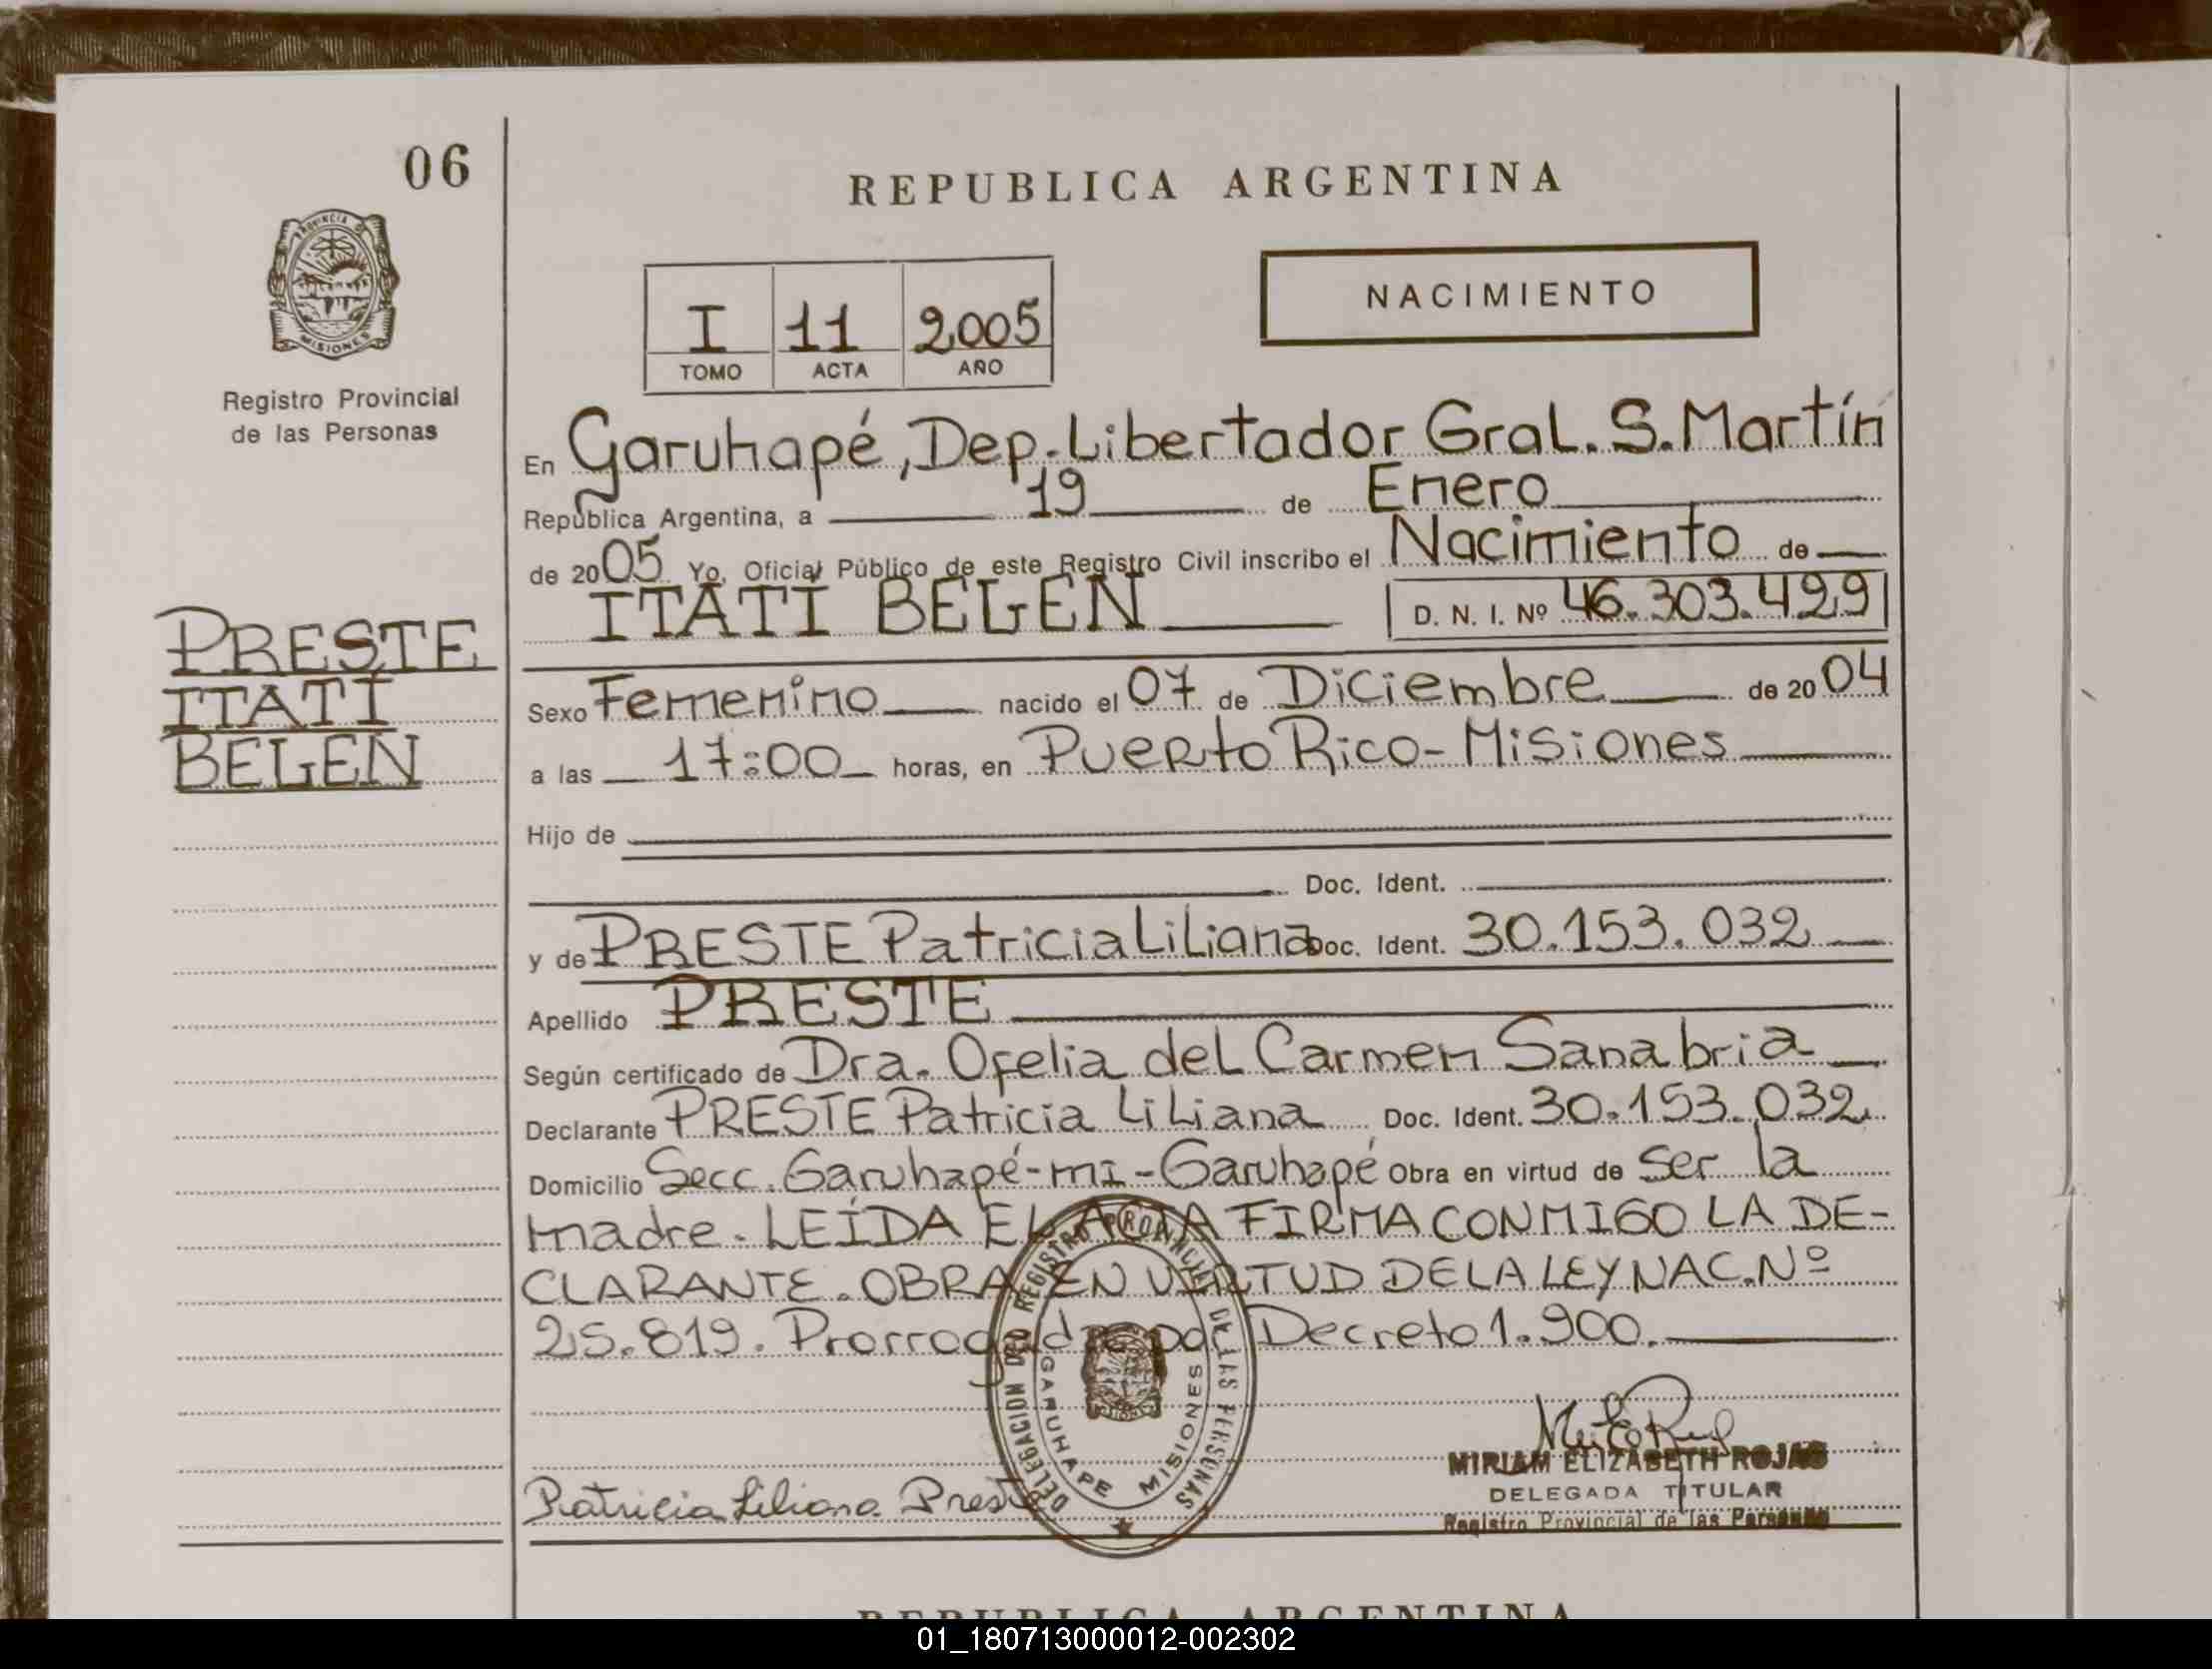 06
REPUBLICA ARGENTINA
PROVINCIA
MISIONES
Registro Provincial
de las Personas
I 11 2005
TOMO ACTA AÑO
NACIMIENTO
En Garuhapé, Dep. Libertador Gral. S. Martín
República Argentina, a 19 de Enero
de 2005 Yo, Oficial Público de este Registro Civil inscribo el Nacimiento de
ITATÍ BELEN D. N. I. Nº 46.303.429
PRESTE
ITATÍ
BELEN
Sexo Femenino nacido el 07 de Diciembre de 2004
a las 17:00 horas, en Puerto Rico - Misiones
Hijo de
Doc. Ident.
y de PRESTE Patricia Liliana Doc. Ident. 30.153.032
Apellido PRESTE
Según certificado de Dra. Ofelia del Carmen Sanabria
Declarante PRESTE Patricia Liliana Doc. Ident. 30.153.032
Domicilio Secc. Garuhapé-mi-Garuhapé Obra en virtud de ser la
madre. LEÍDA EL ACTA FIRMA CONMIGO LA DE-
CLARANTE. OBRA EN VIRTUD DE LA LEY NAC. Nº
25.819. Prorrogado por Decreto 1.900.
DELEGACION DEL REGISTRO PROVINCIAL DE LAS PERSONAS
GARUHAPE MISIONES
Patricia Liliana Preste
MIRIAM ELIZABETH ROJAS
DELEGADA TITULAR
Registro Provincial de las Personas
REPUBLICA ARGENTINA
01_180713000012-002302